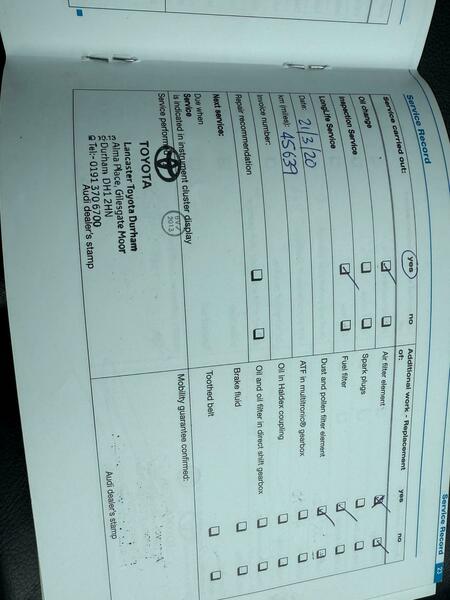 Service Record
Service carried out: yes no
Oil change
Inspection Service
LongLife Service
Date: 21/3/20
km (miles): 45639
Invoice number:
Repair recommendation
Next service:
Due when
Service
is indicated in instrument cluster display
Service perform
TOYOTA
Lancaster Toyota Durham
Alma Place, Gilesgate Moor
Durham DH1 2HN
Tel:- 0191 370 6700
Audi dealer's stamp
Service Record 23
Additional work - Replacement
of: yes no
Air filter element
Spark plugs
Fuel filter
Dust and pollen filter element
ATF in multitronic® gearbox
Oil in Haldex coupling
Oil and oil filter in direct shift gearbox
Brake fluid
Toothed belt
Mobility guarantee confirmed:
Audi dealer's stamp